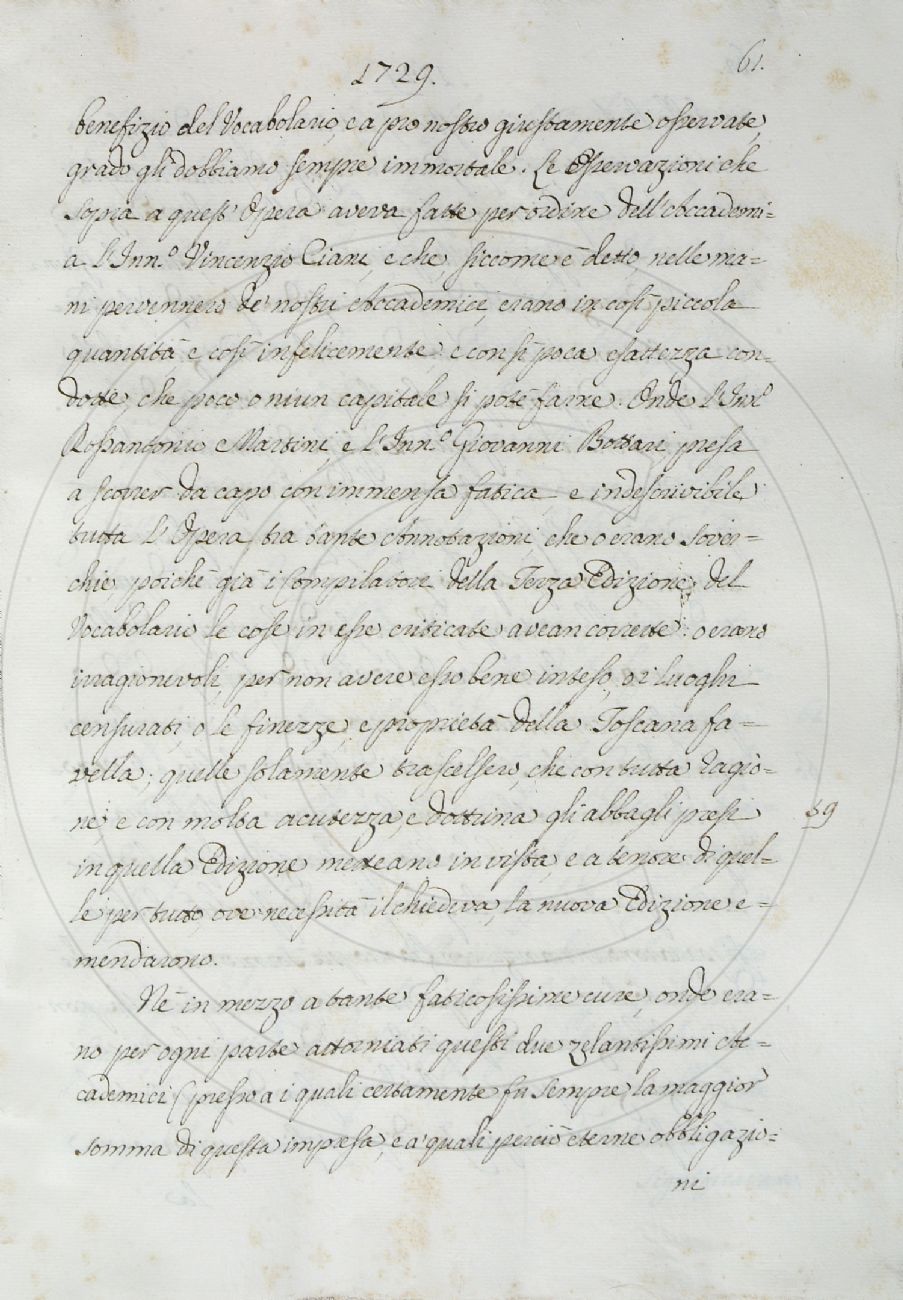 61.
1729.
benefizio del Vocabolario, e a pro nostro giustamente osservate,
grado gli dobbiamo sempre immortale. Le Osservazioni che
sopra a quest'Opera aveva fatte per ordine dell'Accademi=
a l'Inn.º Vincenzio Ciani, e che, siccome è detto, nelle ma=
ni pervennero de' nostri Accademici, erano in così piccola
quantità, e così infelicemente e con sì poca esattezza con=
dotte, che poco o niun capitale si potè farne. Onde l'Inn.º
Rossantonio Martini, e l'Inn.º Giovanni Bottari presa
a scorrer da capo con immensa fatica e indescrivibile
tutta l'Opera, tra tante Annotazioni, che o erano sover=
chie, poichè già i Compilatori della Terza Edizione del
Vocabolario le cose in esse criticate avean corrette: o erano
irragionevoli, per non avere esso bene inteso, o i luoghi
censurati, o le finezze, e proprietà della Toscana fa=
vella; quelle solamente trascelsero, che con tutta ragio=
ne, e con molta acutezza, e dottrina gli abbagli presi
89
in quella Edizione metteano in vista, e a tenore di quel=
le per tutto, ove necessità il chiedeva, la nuova Edizione e=
mendarono.
Nè in mezzo a tante faticosissime cure, onde era=
no per ogni parte attorniati questi due zelantissimi Ac=
cademici (presso a i quali certamente fu sempre la maggior
somma di questa impresa, e a' quali perciò eterne obbligazio=
ni